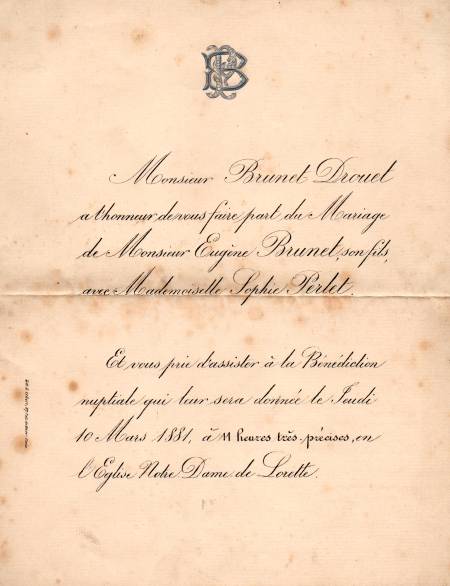 Monsieur Brunet-Drouet
a l'honneur de vous faire part du Mariage
de Monsieur Eugène Brunet, son fils,
avec Mademoiselle Sophie Perlet.
Et vous prie d'assister à la Bénédiction
nuptiale qui leur sera donnée le Jeudi
10 Mars 1881, à 11 heures très-précises, en
l'Eglise Notre Dame de Lorette.